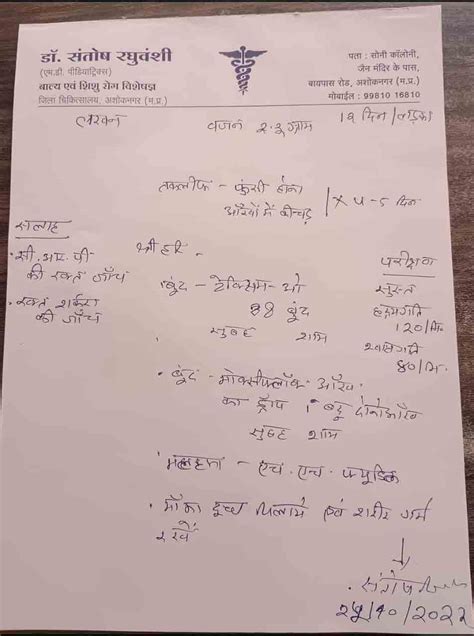 डॉ. संतोष रघुवंशी
(एम.डी. पीडियाट्रिक्स)
बाल्य एवं शिशु रोग विशेषज्ञ
जिला चिकित्सालय, अशोकनगर (म.प्र.)
पता : सोनी कॉलोनी,
जैन मंदिर के पास,
बायपास रोड, अशोकनगर (म.प्र.)
मोबाईल : 99810 16810
वजन 2.3 ग्राम
19 दिन / लड़का
तकलीफ - फुंसी होना
आँखों में कीचड़
x 4-5 दिन
सलाह
सी.आर.पी
की रक्त जाँच
रक्त शर्करा
की जाँच
श्री हरि
बूंद - टेक्सिम-ओ
बूंद
सुबह शाम
परीक्षण
सुस्त
हृदयगति
120/मि
श्वासगति
40/मि
बूंद - मोक्सीफ्लॉक्स आँख
का ड्रॉप 1 बूंद दोनो आँख
सुबह शाम
एच.एच. फ्यूडिक
माँ का दूध पिलाये एवं शरीर गर्म
रखें
25/10/2022